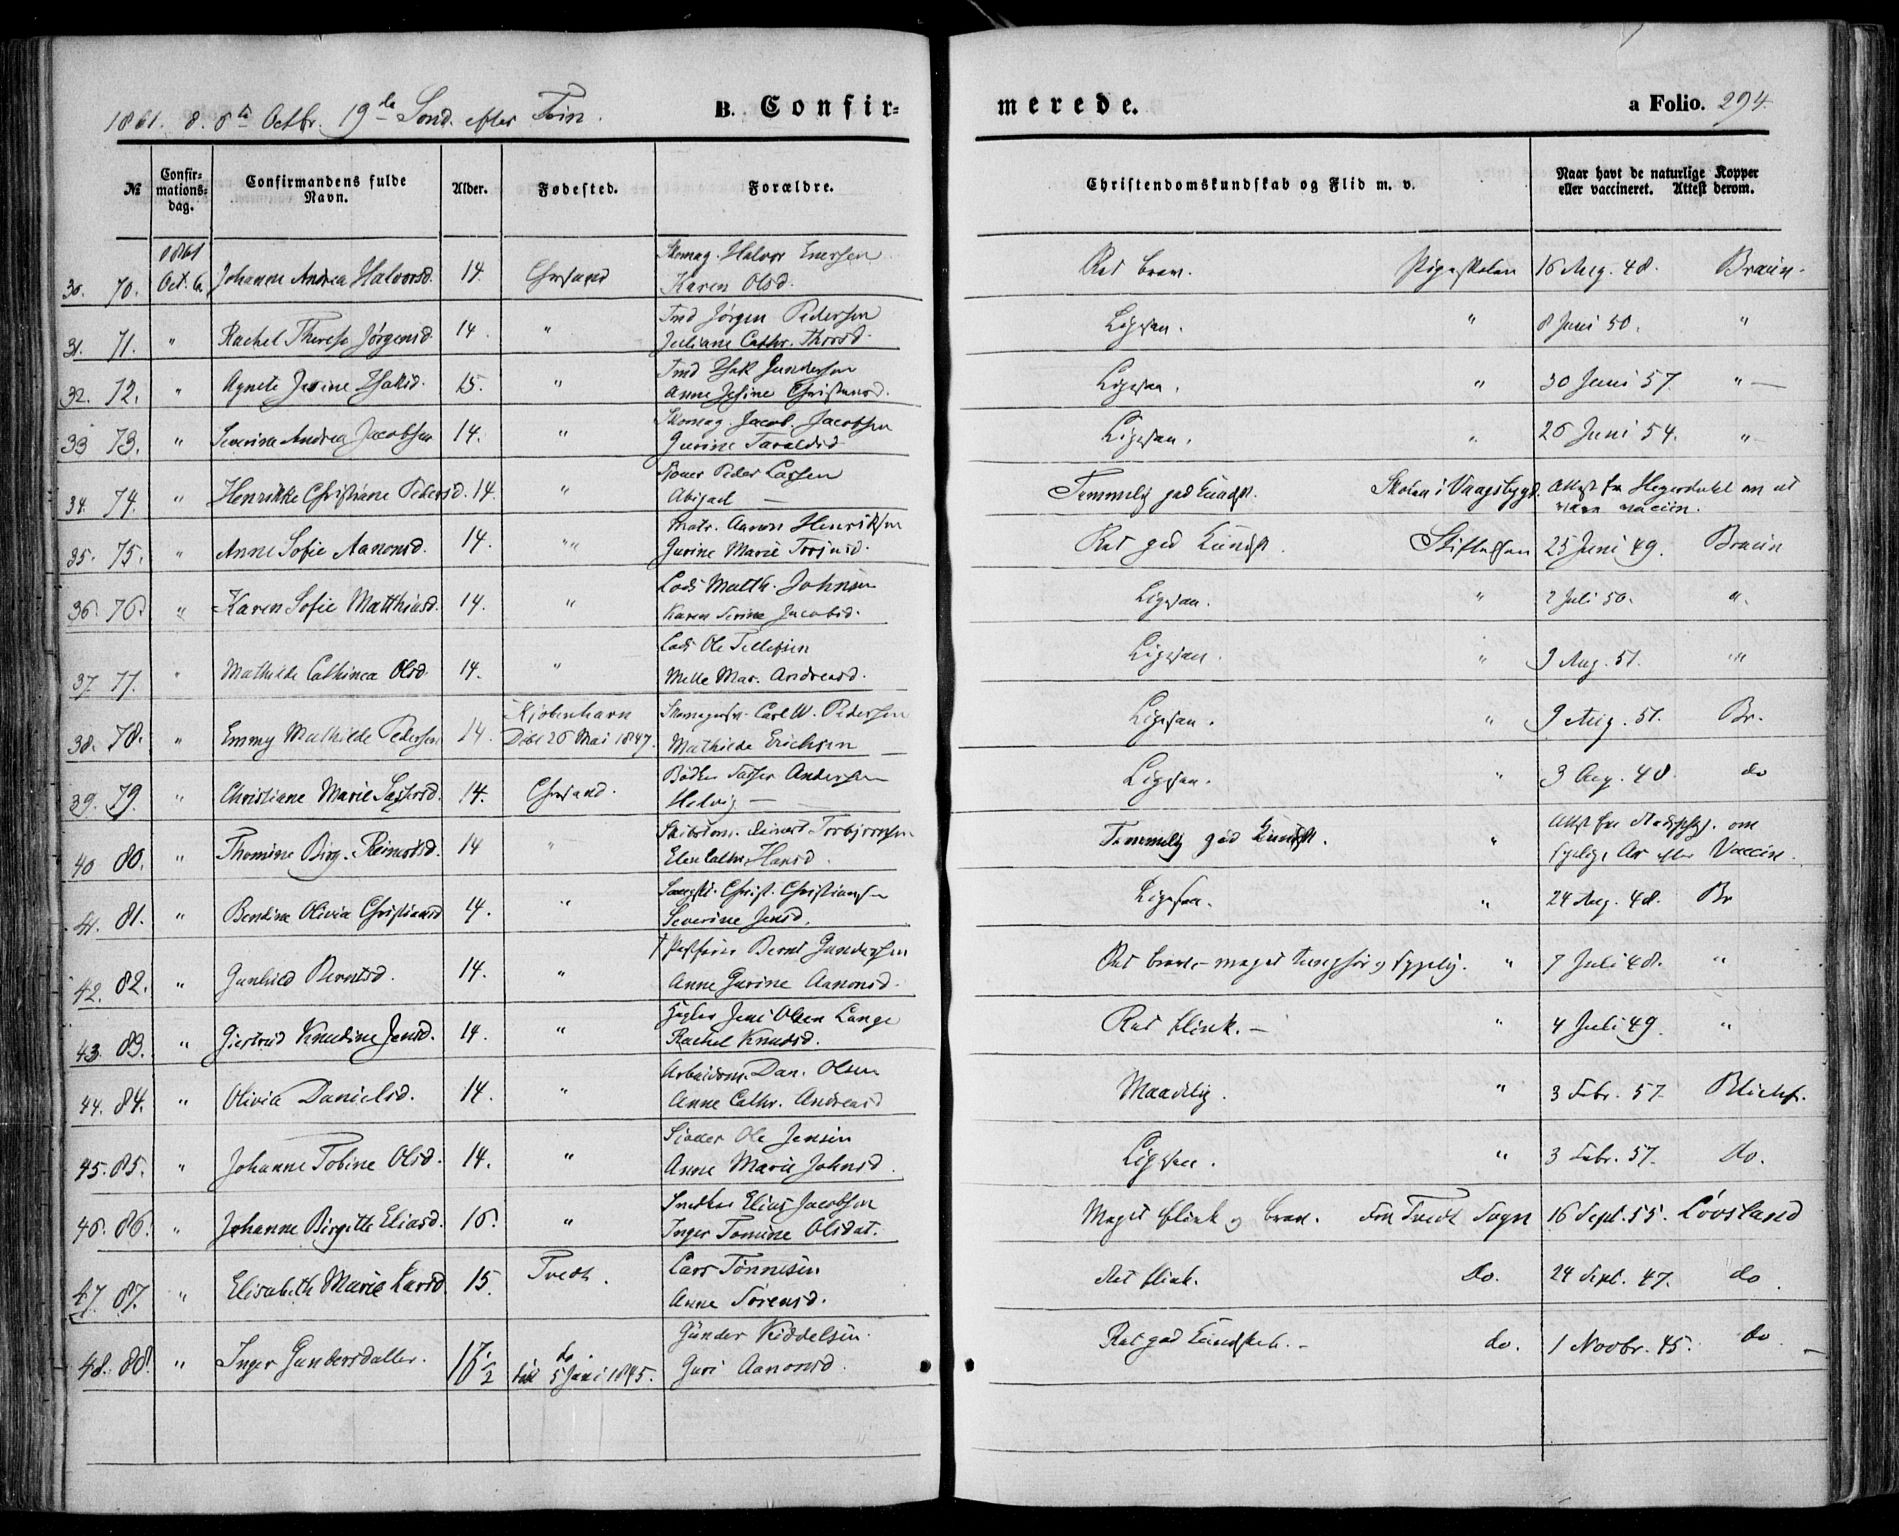 1861. d. 6te Octbr. 19de Sønd. efter Trin.
B. Confir-
merede.
a Folio. 294.
№
Confir-
mations-
dag.
Confirmandens fulde
Navn.
Alder.
Fødested.
Forældre.
Christendomskundskab og Flid m. v.
Naar havt de naturlige Kopper
eller vaccineret. Attest derom.
1861
30. 70. Oct. 6. Johanne Andrea Halvorsd. 14. Chrsand Skomag. Halvor Enersen Karen Olsd. Ret brav. Pigeskolen 16 Aug. 48. Braun.
31. 71. " Rachel Therese Jørgensd. 14 " Tmd Jørgen Pedersen Juliane Cathr. Thorsd. Ligesaa. " 8 Juni 50. "
32. 72. " Agnete Jesine Isaksd. 15. " Tmd Isak Gundersen Anne Jesine Christensd. Ligesaa. " 30 Juni 57. "
33 73. " Severine Andrea Jacobsen 14. " Skomag. Jacob Jacobsen Gurine Taraldsd. Ligesaa. " 26 Juni 54. "
34. 74. " Henrikke Christiane Pedersd. 14. " Peder Larsen Abigael — Temmelig god Kundsk. Skolen i Vaagsbygd. Attest fra
35. 75. " Anne Sofie Aanonsd. 14. " Matr. Aanon Henriksen Gurine Marie Torjusd. Ret god Kundsk. 25 Juni 49. Braun
36. 76. " Karen Sofie Matthiasd. 14. " Lods Matth. Johnsen Karen Serine Jacobsd. Ligesaa. " 2 Juli 50. "
37. 77. " Mathilde Cathinca Olsd. 14. " Lods Ole Tellefsen Mette Mar. Andreasd. Ligesaa. " 9 Aug. 51. "
38. 78. " Emmy Mathilde Pedersen 14. Kjøbenhavn Døbt 26 Mai 1847. Carl W. Pedersen Mathilde Erichsen Ligesaa. " 9 Aug. 51. Br.
39. 79. " Christiane Marie 14. Chrsand. Bødker Andersen Helvig — Ligesaa. " 3 Aug. 48. do
40 80. " Thomine Birg. Reinertsd. 14 " Skibstøm. Reinert Torbjørnsen Elen Cathr. Hansd. Temmelig god Kundsk. " Attest fra om Ar efter Vaccin.
41. 81. " Bendine Olivia Christiansd 14. " Christ. Christiansen Severine Jensd. Ligesaa. " 24 Aug. 48. Br
42. 82. " Gunhild Berntsd. 14. " † Bernt Gundersen Anne Gurine Aanonsd. Ret brav – meget tunghør og sygelig. " 7 Juli 48. "
43 83. " Giertrud Knudine Jensd. 14. " Jens Olsen Lange Rachel Knudsd. Ret flink. – " 4 Juli 49. "
44. 84. " Olivia Danielsd. 14. " Arbeidsm. Dan. Olsen Anne Cathr. Andreasd Maadelig. " 3 Febr. 57. Blichf.
45. 85. " Johanne Tobine Olsd. 14. " Ole Jensen Anne Marie Johnsd. Ligesaa. " 3 Febr. 57. do.
46. 86. " Johanne Birgitte Eliasd. 16. " Snedker Elias Jacobsen Inger Tomine Olsdat. Meget flink og brav. Fra Tvedt Sogn 16 Sept. 55. Løvsland
47. 87. " Elisabeth Marie Larsd 15. Tvedt. Lars Tønnesen Anne Sørensd. Ret flink. do. 24 Sept. 47. do.
48. 88. " Inger Gundersdatter. 16 1/2 do. født 5 Juni 1845. Gunder Keddelsen. Guri Aanonsd. Ret god Kundskab. – do. 1 Novbr. 45. do. –